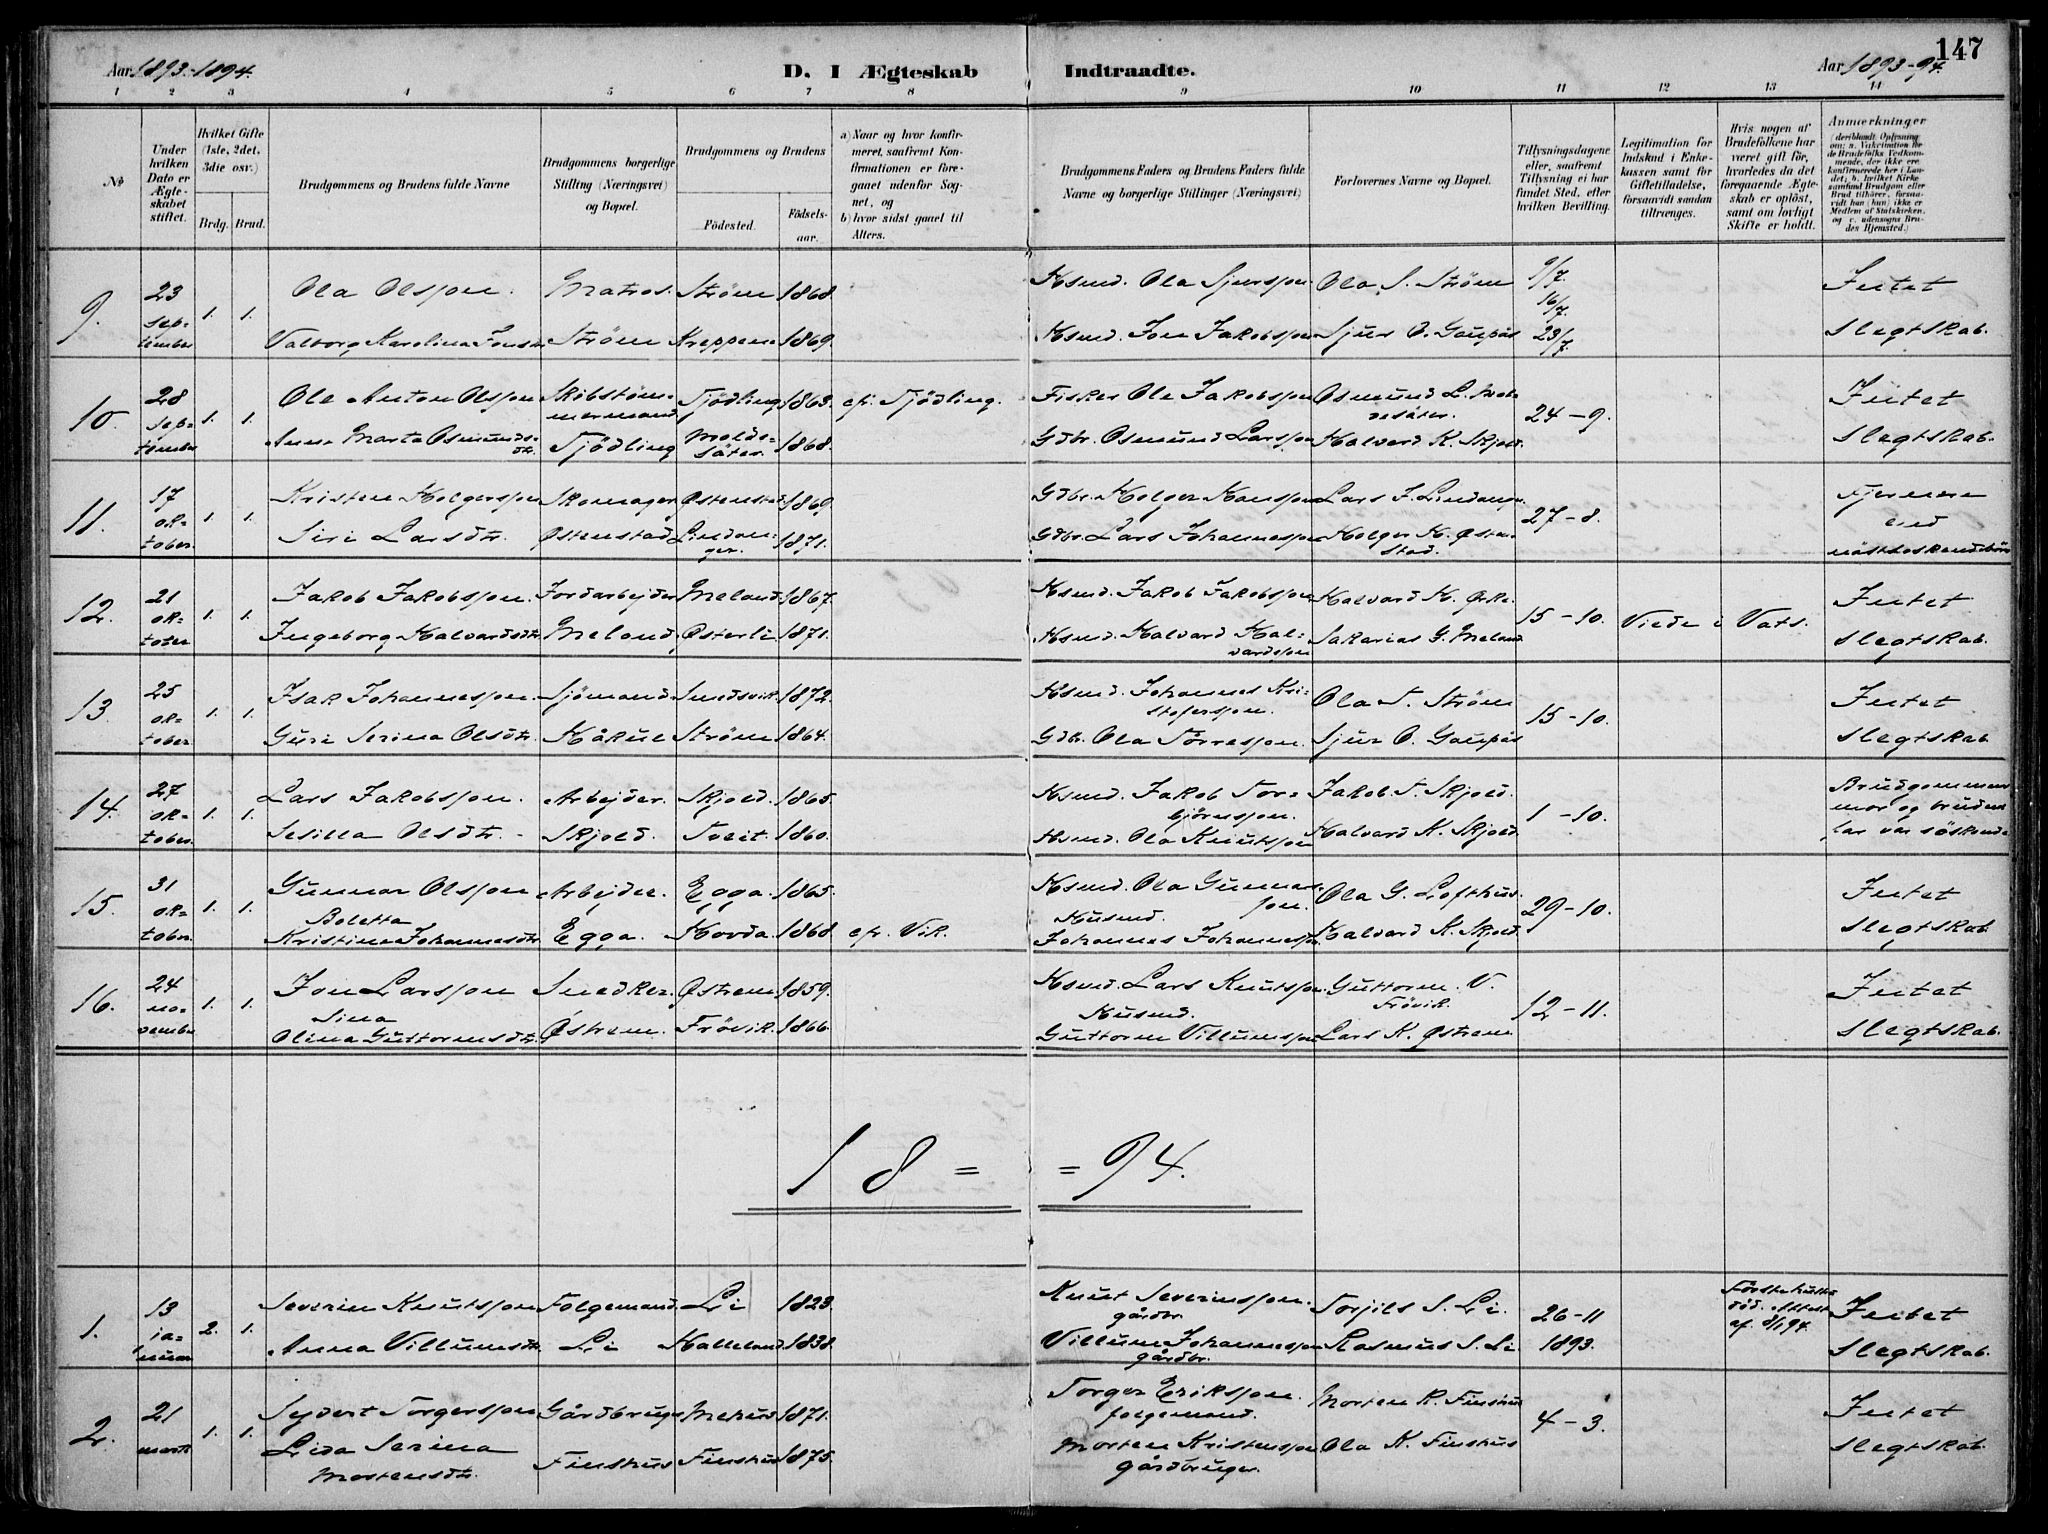 147
Aar 1893-1894.
D. I Ægteskab
Indtraadte.
Aar 1893-94.
1 2 3 4 5 6 7 8 9 10 11 12 13 14
№
Under hvilken Dato er Ægteskabet stiftet.
Hvilket Gifte (1ste, 2det, 3die osv.)
Brdg. Brud.
Brudgommens og Brudens fulde Navne
Brudgommens borgerlige Stilling (Næringsvei) og Bopæl.
Brudgommens og Brudens
Födested.
Födselsaar.
a) Naar og hvor konfirmeret, saafremt Konfirmationen er foregaaet udenfor Sognet, og
b) hvor sidst gaaet til Alters.
Brudgommens Faders og Brudens Faders fulde Navne og borgerlige Stillinger (Næringsvei)
Forlovernes Navne og Bopæl.
Tillysningsdagene eller, saafremt Tillysning ei har fundet Sted, efter hvilken Bevilling.
Legitimation for Indskud i Enkekassen samt for Giftetilladelse, forsaavidt saadan tiltrænges.
Hvis nogen af Brudefolkene har været gift för, hvorledes da det foregaaende Ægteskab er oplöst, samt om lovligt Skifte er holdt.
Anmærkninger (deriblandt Oplysning om: a. Vakcination for de Brudefolks Vedkommende, der ikke ere konfirmerede her i Landet; b. hvilket Kirkesamfund Brudgom eller Brud tilhörer, forsaavidt han (hun) ikke er Medlem af Statskirken, og c. udensogns Brudes Hjemsted.)
9. 23 september 1. 1. Ola Olsson. Matros. Strøm 1868. Hsmd. Ola Sjursson. Ola S. Strøm 9/7. 16/7. 23/7. Intet
Valborg Karolina Jonsdtr Strøm Kreppene 1869. Hsmd. Jon Jakobsson Sjur O. Gaupås Slegtskab.
10. 28 september 1. 1. Ole Anton Olsson Skibstømmermand Tjødling 1863. cfr. Tjødling. Fisker Ole Jakobsson Osmund L. Moldesäter. 24-9. Intet
Anna Marta Osmundsdtr. Tjødling Moldesäter. 1868. Gdbr. Osmund Larsson Halvard K. Skjold. Slegtskab.
11. 17 oktober. 1. 1. Kristen Holgersson Skomager Østenstad 1869. Gdbr. Holger Hansson Lars J. Lindanger 27-8. Fjernere
Siri Larsdtr. Østenstad Lindanger. 1871. Gdbr. Lars Johannesson Holger H. Østenstad. end
12. 21 oktober 1. 1. Jakob Jakobsson. Jordarbejder Meland 1867. Hsmd. Jakob Jakobsson Halvard H. 15-10. Viede i Vats. Intet
Ingeborg Halvardsdtr Meland Østerli 1871. Hsmd. Halvard Halvardsson Sakarias G. Meland Slegtskab.
13 25 oktober 1. 1. Isak Johannesson. Sjømand Sundsvik 1872. Hsmd. Johannes Kristofersson. Ola T. Strøm 15-10. Intet
Guri Serina Olsdtr. Håkul Strøm 1864. Gdbr. Ola Tørresson. Sjur O. Gaupås Slegtskab.
14. 27 oktober. 1. 1. Lars Jakobsson. Arbejder. Skjold. 1865. Hsmd. Jakob Torbjörnsson. Jakob T. Skjold. 1-10. Brudgommens
Sesilia Olsdtr. Skjold. Tveit. 1860. Hsmd. Ola Knutsson Halvard K. Skjold. mor og brudens
far var söskende
15. 31 oktober. 1. 1. Gunnar Olsson Arbejder. Egga. 1865. Hsmd. Ola Gunnarsson. Ola G. Lofthus. 29-10. Intet
Boletta Kristina Johannesdtr Egga. Hovda. 1868. cfr. Vik. Husmd. Johannes Johannesson Halvard K. Skjold. Slegtskab.
16. 24 november 1. 1. Jon Larsson Snedker. Østrem 1859. Hsmd. Lars Knutsson Guttorm V. Frövik. 12-11. Intet
Sina Olina Guttormsdtr. Østrem. Frövik. 1866. Husmd. Guttorm Villumsson Lars K. Østrem Slegtskab.
18 = = 94.
1. 13 januar 2. 1. Severin Knutsson Folgemand. Li 1823. Knut Severinsson. gårdbr. Torjils S. Li. 26-11 1893. død. Attest af 8/1 94. Intet
Anna Villumsdtr. Li Halleland 1838. Villum Johannesson gårdbr. Rasmus S. Li. Slegtskab.
2. 21 marts 1. 1. Sjovert Torgersson Gårdbruger Mehus 1871. Torger Eriksson. folgemand. Morten K. Finshus 4-3. Intet
Lisa Serina Mortensdtr. Finshus Finshus 1875. Morten Kristensson gårdbruger. Ola K. Finshus Slegtskab.